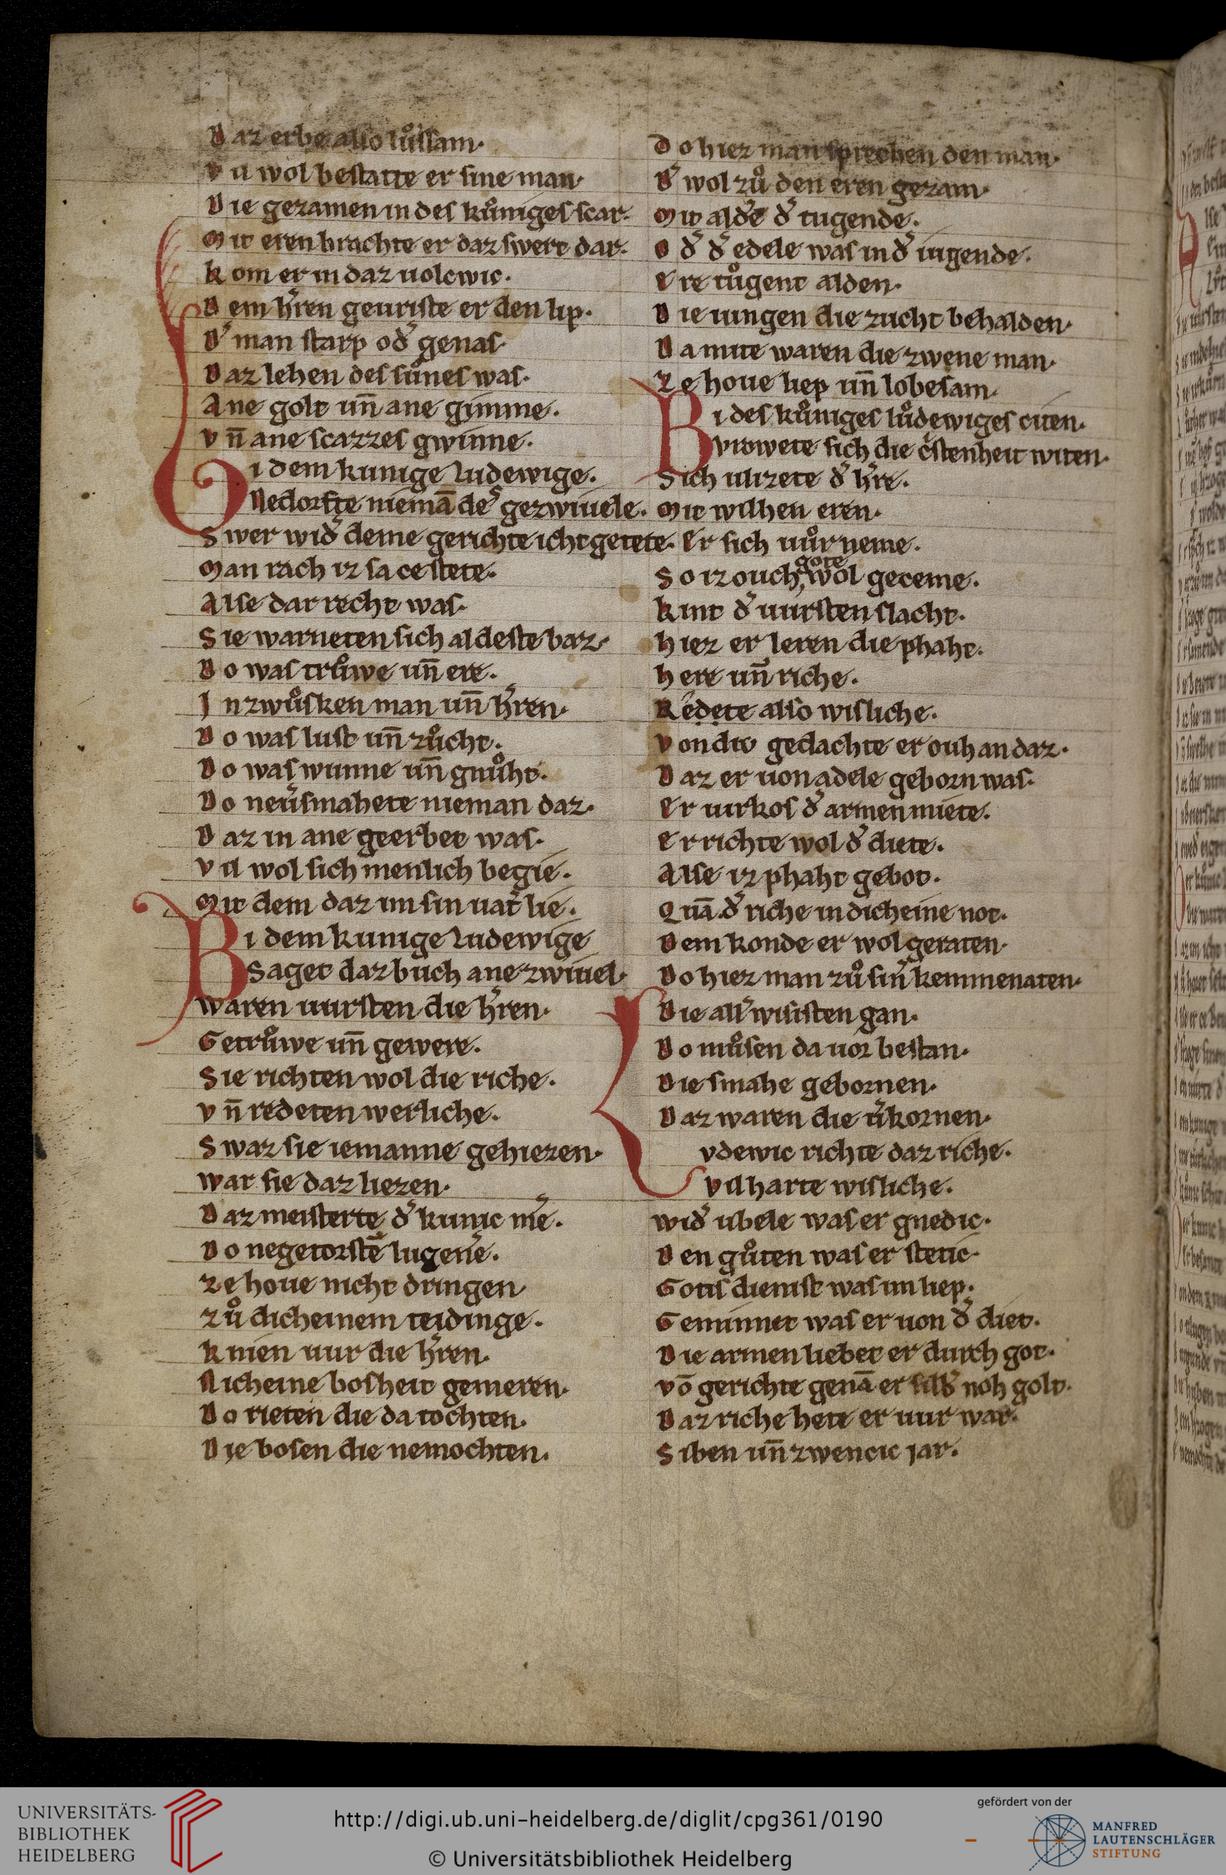 Daz erbe also luͦssam·
Vil wol bestatte er sine man·
Die gezamen in des kuͦniges scar·
Mit eren brachte er daz swert dar·
Kom er in daz uolcwic·
Dem h̄ren geuriste er den lip·
D̾ man starp od̾ genas·
Daz lehen des suͦnes was·
Ane golt un̄ ane gimme·
Vn̄ ane scazzes gwinne·
Bi dem kunige Ludewige·
Nedorfte niemā des gezwiuele·
Swer wid̾ deme gerichte icht getete·
Man rach iz sa ce stete·
Alse dar recht was·
Sie warneten sich al deste baz·
Do was truͦwe un̄ ere·
In zwuͦsken man un̄ h̄ren·
Do was lust un̄ zuͦcht·
Do was wunne un̄ gnuͦht·
Do neu̾smahete nieman daz·
Daz in ane geerbet was·
Vil wol sich menlich begie·
Mit dem daz im sin uat̾ lie·
Bi dem kunige Ludewige
Saget daz buch ane zwiuel·
Waren uursten die h̄ren·
Getruͦwe un̄ gewere·
Sie richten wol die riche·
Vn̄ redeten werliche·
Swaz sie iemanne gehiezen·
War sie daz liezen·
Daz meisterte d̾ kunic me·
Do negetorstē lugene·
Ze houe nicht dringen
Zuͦ dicheinem teidinge·
Knien uur die h̄ren·
Nicheine bosheit gemeren·
Do rieten die da tochten·
Die bosen die nemochten·
Do hiez man sprechen den man·
D̾ wol zuͦ den eren gezam·
Mit ald̾e d̾ tugende·
O d̾ d̾ edele was in d̾ iugende·
Ere tuͦgent alden·
Die iungen die zucht behalden·
Da mite waren die zwene man·
Ze houe liep un̄ lobesam·
Bi des kuͦniges luͦdewiges citen·
Vrowete sich die c̾stenheit witen·
Sich ulizete d̾ h̾re·
Mit wilhen eren·
Er sich uuͦr neme·
gote
So iz ouch wol geceme·
Kint d̾ uursten slacht·
Hiez er leren die phaht·
Here un̄ riche·
Redete also wisliche·
Von div gedachte er ouh an daz·
Daz er uon adele geborn was·
Er uirkos d̾ armen miete·
Er richte wol d̾ diete·
Alse iz phaht gebot·
Quā d̾ riche in dicheine not·
Dem konde er wol geraten·
Do hiez man zuͦ sin̾ kemmenaten·
Die all̾ wisisten gan·
Do muͦsen da uor bestan·
Die smahe gebornen·
Daz waren die u̾kornen·
Ludewic richte daz riche·
Vil harte wisliche·
Wid̾ ubele was er gnedic·
Den guͦten was er stetic·
Gotis dienist was im liep·
Geminnet was er uon d̾ diet·
Die armen liebet er durch got·
Vō gerichte genā er silb̾ noh golt·
Daz riche hete er uur war·
Siben un̄ zwencic jar·
UNIVERSITÄTS-
BIBLIOTHEK
HEIDELBERG
http://digi.ub.uni-heidelberg.de/diglit/cpg361/0190
© Universitätsbibliothek Heidelberg
gefördert von der
MANFRED
LAUTENSCHLÄGER
STIFTUNG